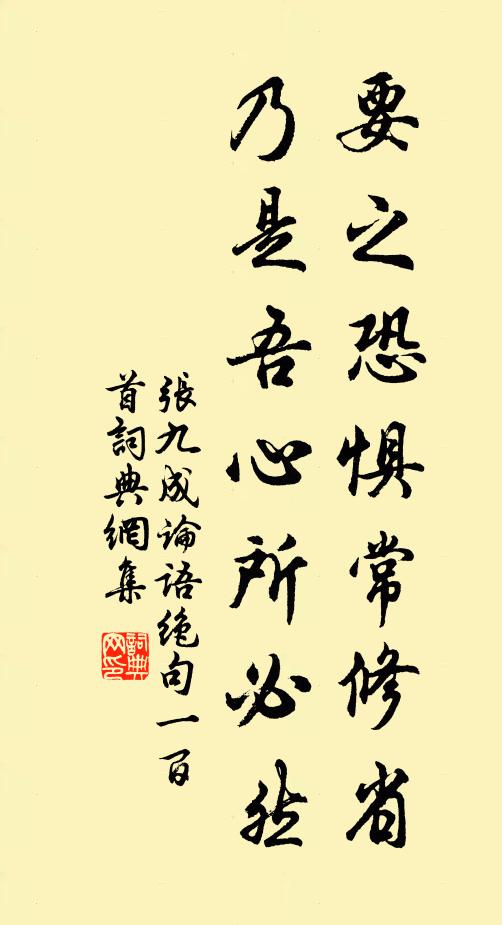 要之恐惧常修省
乃是吾心所必然
張九成論語绝句一百
首詞典網集
詞典网印